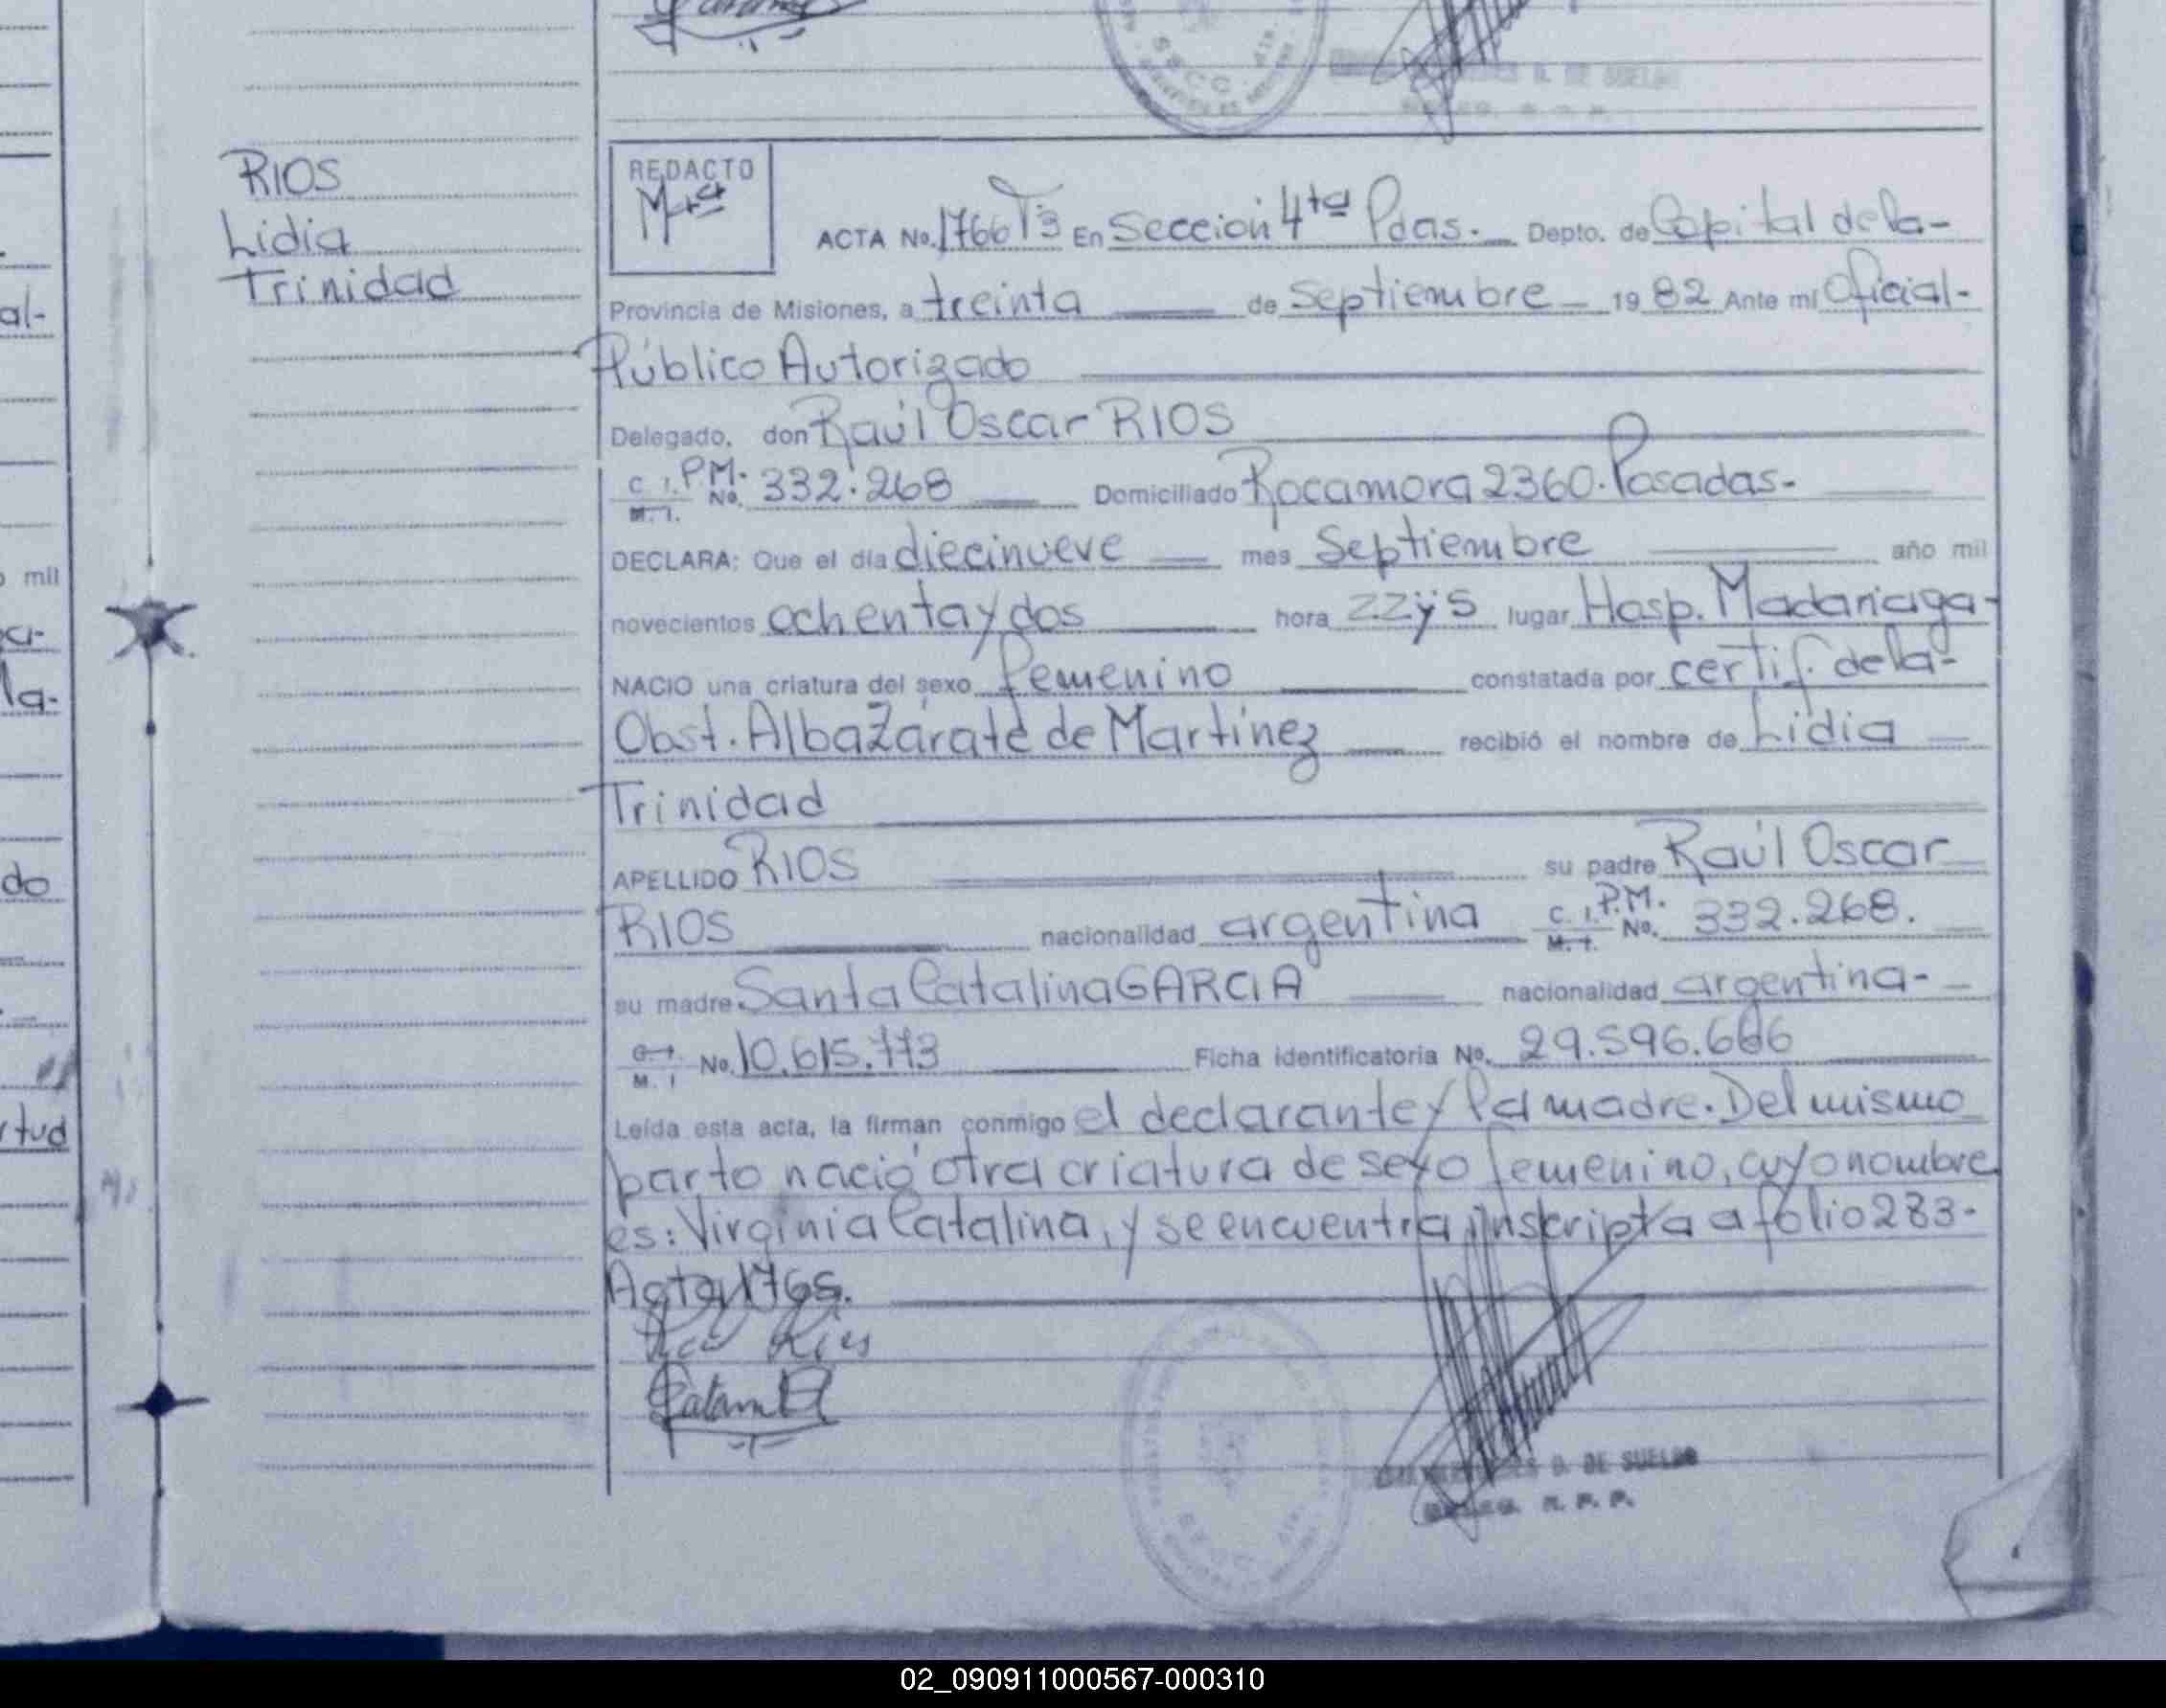 RIOS
Lidia
Trinidad
REDACTO
ACTA No. 1766 T3 En Sección 4ta Pdas. Depto. de Capital de la-
Provincia de Misiones, a treinta de Septiembre 19 82 Ante mí Oficial-
Público Autorizado
Delegado, don Raúl Oscar RIOS
C. I. P.M. M. I. No. 332.268 Domiciliado Rocamora 2360. Posadas.-
DECLARA: Que el día diecinueve mes Septiembre año mil
novecientos ochenta y dos hora 22 y 5 lugar Hosp. Madariaga-
NACIO una criatura del sexo femenino constatada por certif. de la-
Obst. Alba Zárate de Martínez recibió el nombre de Lidia
Trinidad
APELLIDO RIOS su padre Raúl Oscar
RIOS nacionalidad argentina C. I. P.M. M. I. No. 332.268.
su madre Santa Catalina GARCIA nacionalidad argentina-
C. I. M. I No. 10.615.773 Ficha identificatoria No. 29.596.666
Leída esta acta, la firman conmigo el declarante y la madre. Del mismo
parto nació otra criatura de sexo femenino, cuyo nombre
es: Virginia Catalina, y se encuentra inscripta a folio 283-
Acta 1765.
Rios
D. DE SUELDO
R. P. P.
al-
mil
a-
la-
do
tud
02_090911000567-000310